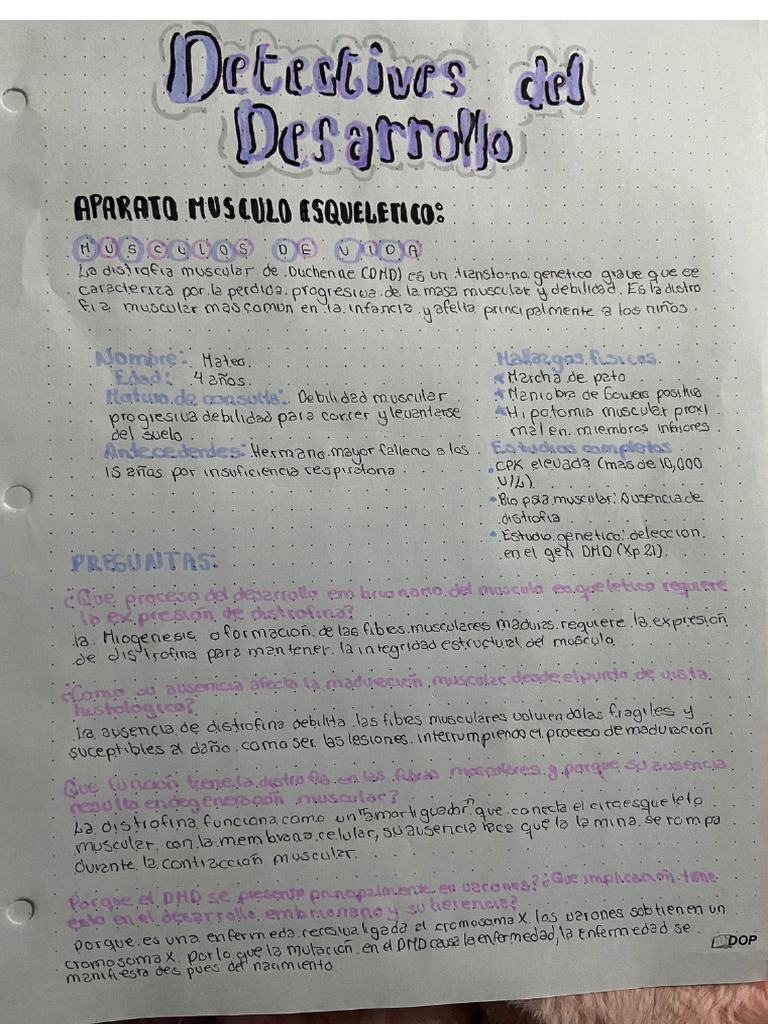 Detectives del
Desarrollo
APARATO MUSCULO ESQUELETICO:
MUSCULOS DE VIDA
La distrofia muscular de Duchenne (DMD) es un transtorno genetico grave que se
caracteriza por la perdida progresiva de la masa muscular y debilidad. Es la distro
fia muscular mas comun en la infancia y afecta principalmente a los niños.
Nombre: Mateo.
Edad: 4 años.
Motivo de consulta: Debilidad muscular
progresiva debilidad para correr y levantarse
del suelo
Antecedentes: Hermano mayor fallecio a los
15 años por insuficiencia respiratoria.
Hallazgos fisicos
Marcha de pato
Maniobra de Gowers positiva
Hipotomia muscular proxi
mal en miembros inferiores
Estudios completos
CPK elevada (mas de 10,000
U/L).
Biopsia muscular: Ausencia de
distrofia
Estudio genetico: delecion
en el gen DMD (Xp21).
PREGUNTAS:
¿Que proceso del desarrollo embrionario del musculo esqueletico requiere
la expresión de distrofina?
la Miogenesis o formacion de las fibes musculares maduras requiere la expresion
de distrofina para mantener la integridad estructural del musculo.
¿Como su ausencia afecta la maduración muscular desde el punto de vista
histologico?
la ausencia de distrofina debilita las fibres musculares volviendolas fragiles y
suceptibles al daño como ser las lesiones interrumpiendo el proceso de maduración
Que función tiene la distrofia en las fibras musculares y porque su ausencia
resulta en degeneración muscular?
La distrofina funciona como un "amortiguador" que conecta el citoesqueleto
muscular con la membrana celular, su ausencia hace que la lamina se rompa
durante la contracción muscular.
Porque el DMD se presenta principalmente en varones? ¿Que implicación tiene
esto en el desarrollo embrionario y su herencia?
porque es una enfermeda recesiva ligada al cromosoma X. los varones sobtienen un
cromosoma X. por lo que la mutación en el DMD causa la enfermedad, la enfermedad se
manifiesta des pues del nacimiento
DOP